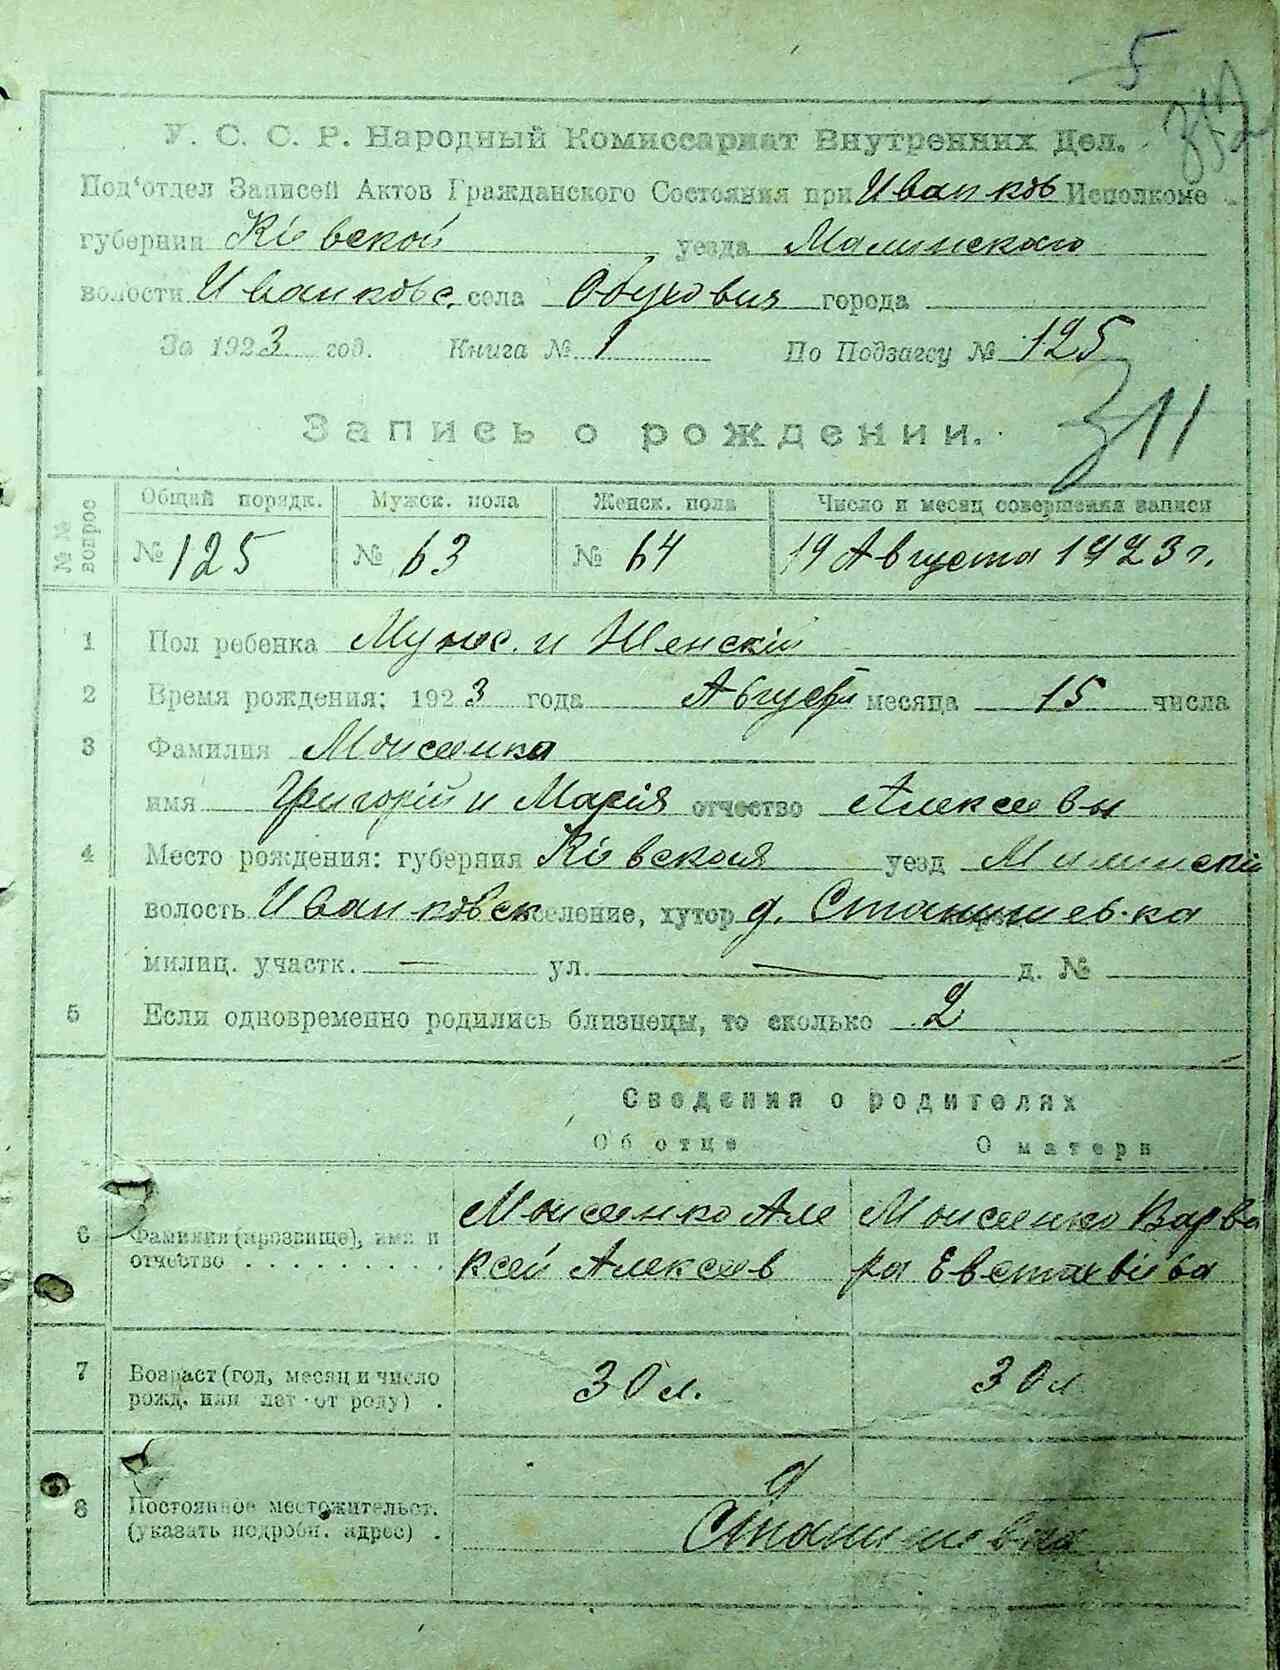 5
У. С. С. Р. Народный Комиссариат Внутренних Дел.
Под'отдел Записей Актов Гражданского Состояния при Иванков Исполкоме
губернии Кіевской уезда Малинскаго
волости Иванковс. села Обуховия города
За 1923 год. Книга № 1 По Подзагсу № 125
311
Запись о рождении.
№№ вопрос Общий порядк. Мужск. пола Женск. пола Число и месяц совершения записи
№ 125 № 63 № 64 19 Августа 1923 г.
1 Пол ребенка Мужс. и Женскій
2 Время рождения: 1923 года Августа месяца 15 числа
3 Фамилия Моисеенко
имя Григорій и Марія отчество Алексеевы
4 Место рождения: губерния Кіевская уезд Малинскій
волость Иванковск селение, хутор д. Станишевка
милиц. участк. — ул. — д. №
5 Если одновременно родились близнецы, то сколько 2
Сведения о родителях
Об отце О матери
6 Фамилия (прозвище), имя и отчество Моисеенко Але Моисеенко Варва
ксей Алексеев ра Евстафіева
7 Возраст (год, месяц и число рожд. или лет от роду) 30 л. 30 л
8 Постоянное местожительст. (указать подробн. адрес) д
Станишевка